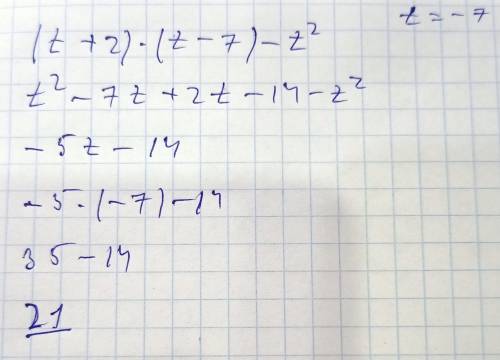 z = -7
(z + 2) · (z - 7) - z²
z² - 7z + 2z - 14 - z²
- 5z - 14
- 5 · (-7) - 14
35 - 14
21